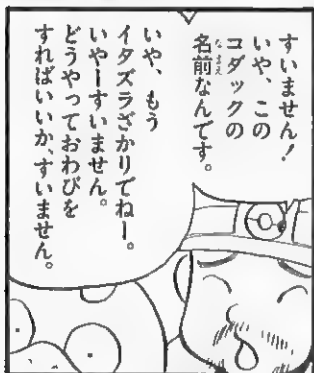 すいません!
いや、この
コダックの
名前なんです。
いや、もう
イタズラざかりでねー。
いやーすいません。
どうやっておわびを
すればいいか、すいません。